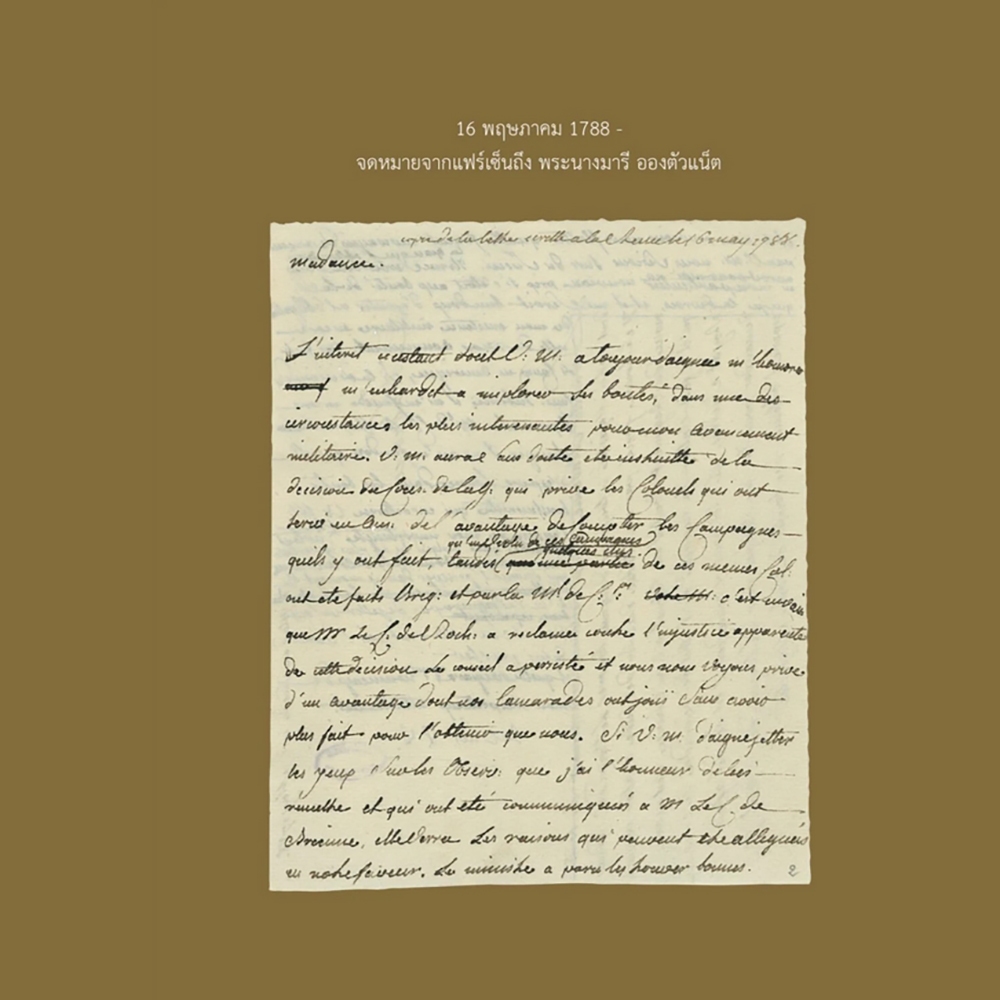 16 พฤษภาคม 1788 -
จดหมายจากแฟร์เซ็นถึง พระนางมารี อองตัวแน็ต
copie de la lettre écritte a la Reine le 16 may 1788.
Madame.
L'interet constant dont V: M: a toujour daigné m'honorer
m'enhardit a implorer ses boutés, dans une des
circonstances les plus interessantes pour mon avancement
militaire. V: M: aura sans doute été instruitte de la
decision du Cons: de la G: qui prive les Colonels qui ont
servi en Am: de l'avantage de compter les Campagnes
quels y ont fait, tandis qu'en vertu de ces Campagnes quelques uns de ces memes Col:
ont eté faits Brig: et par la c'est envain
que Mr Le C. de Roch: a reclamé contre l'injustice apparente
de cette decision Le conseil a persisté et nous nous voyons privé
d'un avantage dont nos Camarades ont joui sans avoir
plus fait pour l'obtenir que nous. Si V: M: daigne jetter
les yeux sur les Observ: que j'ai l'honneur de lui
remettre et qui ont eté communiqués a M Le C. de
Brienne, elle verra les raisons qui peuvent etre allegués
en notre faveur. Le ministre a paru les trouver bonnes.
2